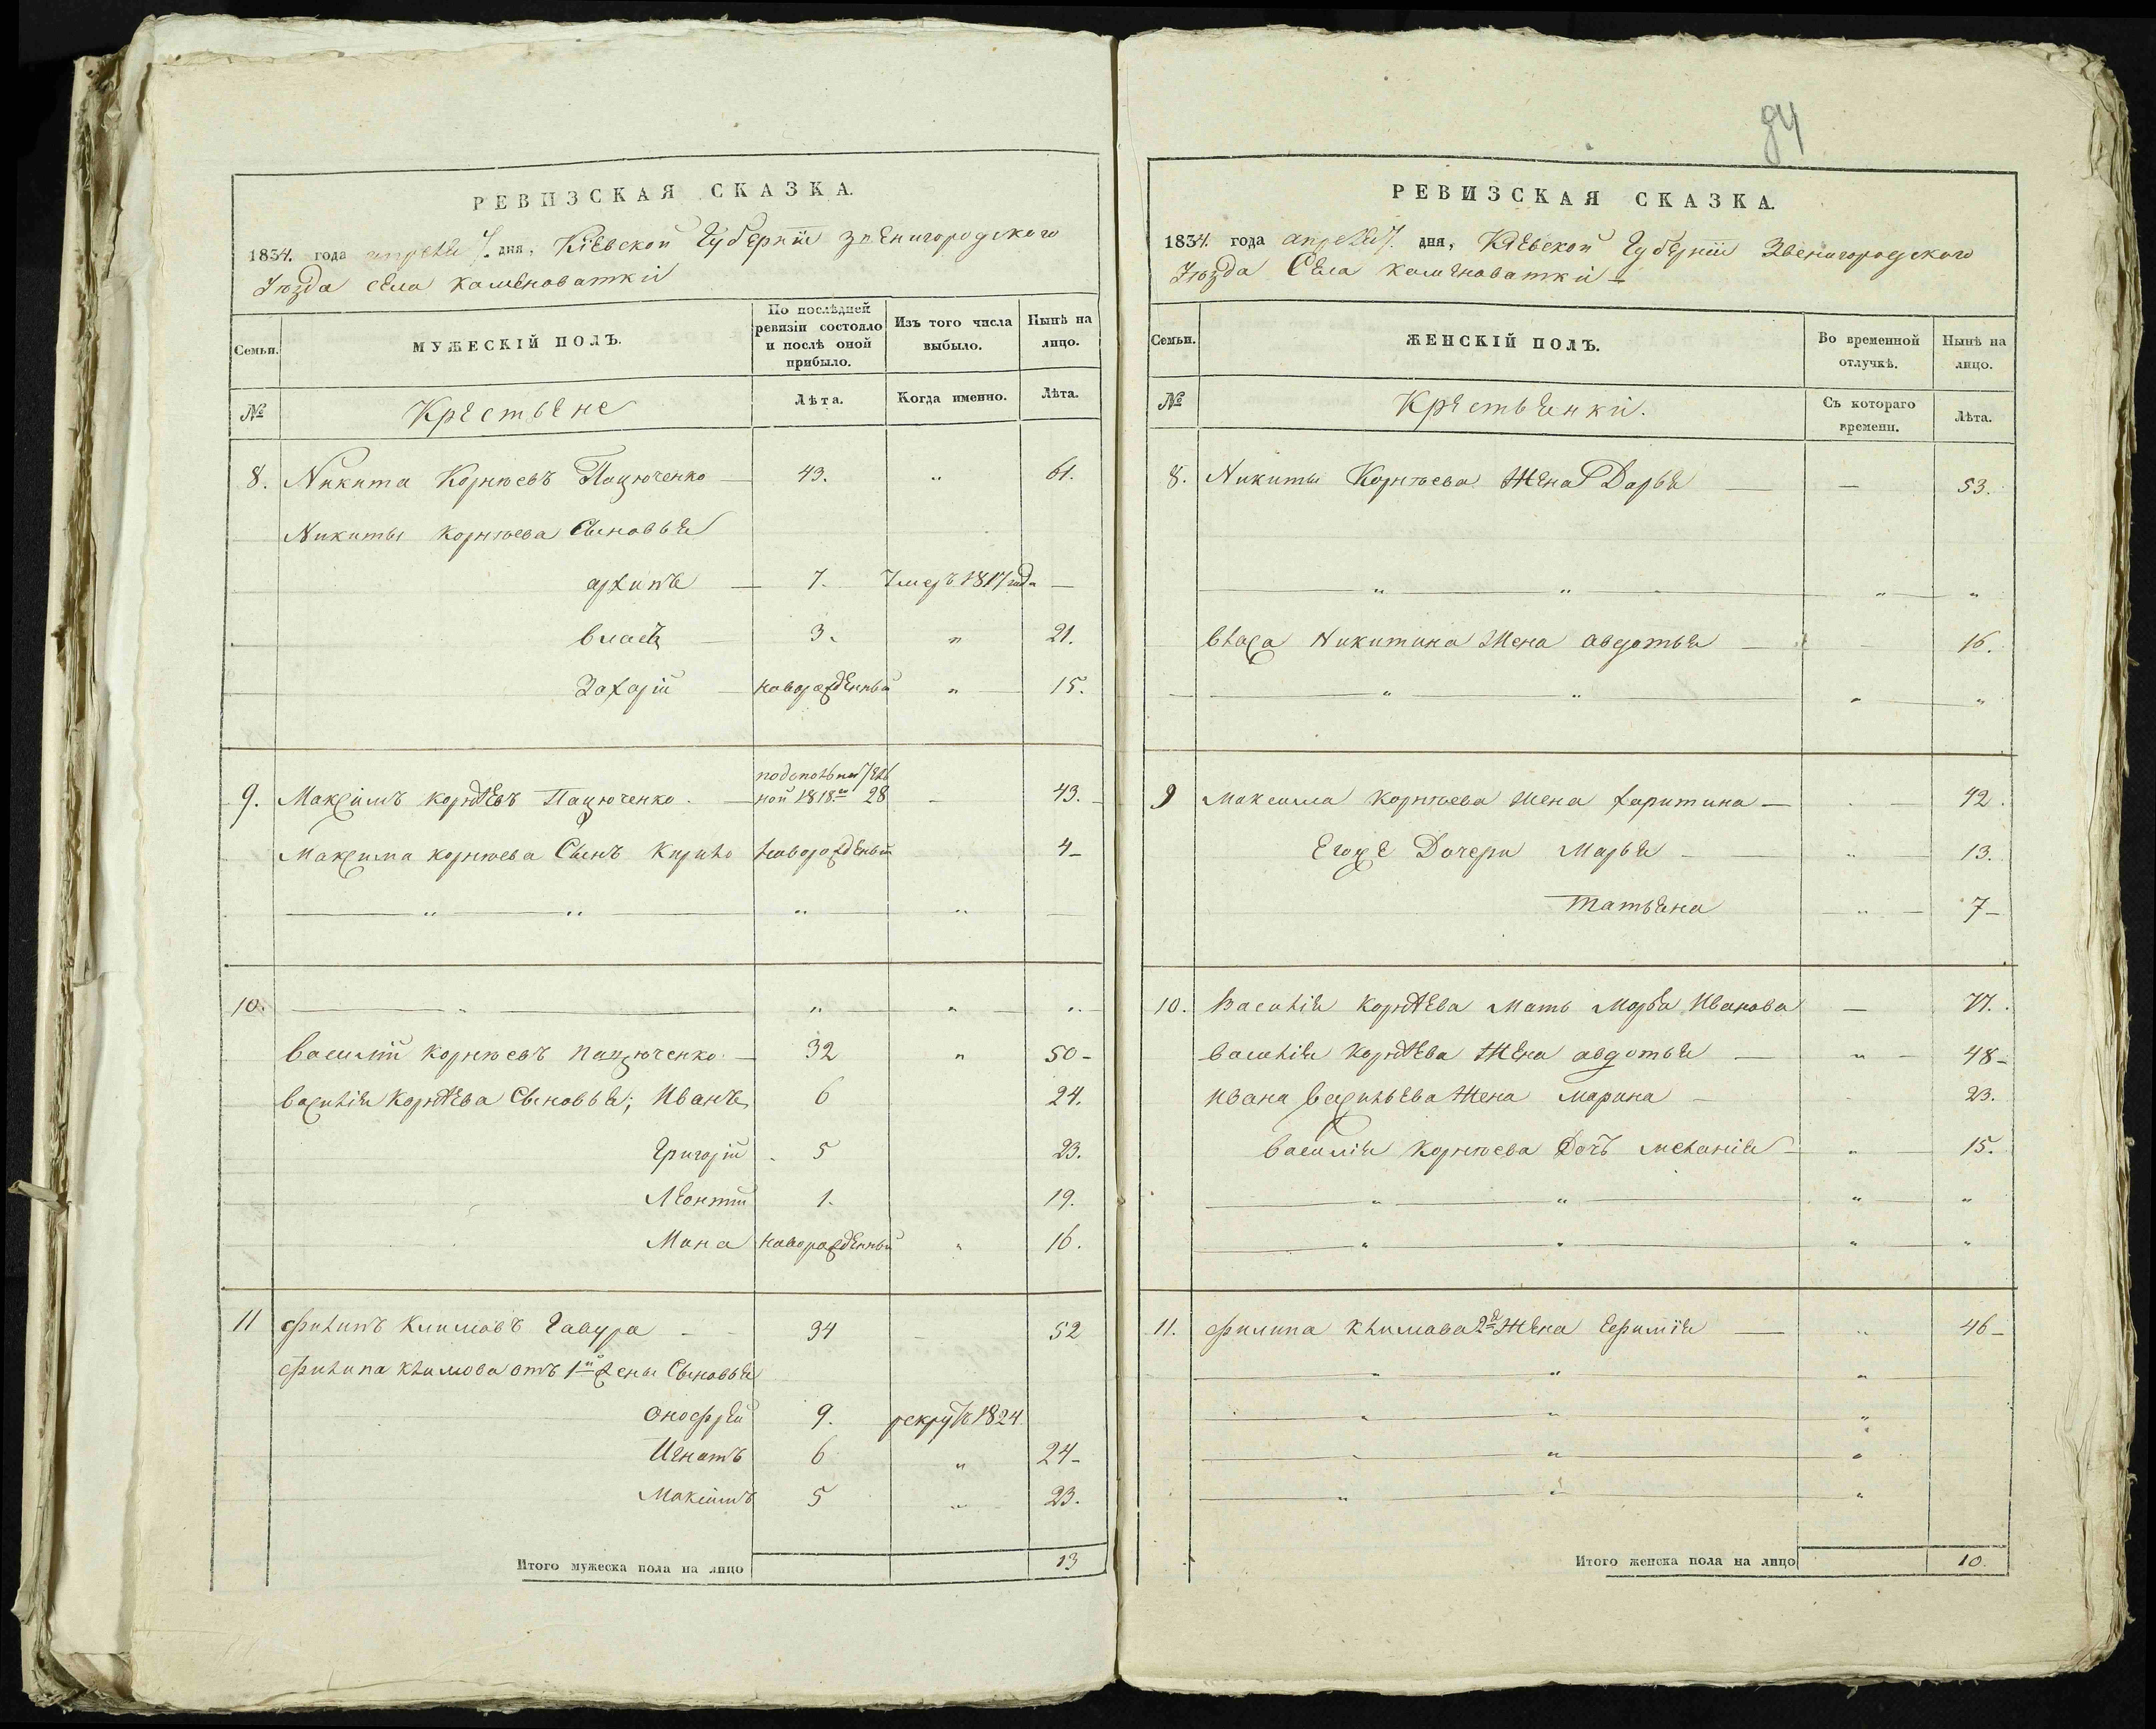 РЕВИЗСКАЯ СКАЗКА.
1834. года апреля 7. дня, Кіевской Губерніи Звенигородского
Уѣзда Села Каменоватки
Семьи.
МУЖЕСКІЙ ПОЛЪ.
По послѣдней ревизіи состояло и послѣ оной прибыло.
Изъ того числа выбыло.
Нынѣ на лицо.
№
Крестьяне
Лѣта.
Когда именно.
Лѣта.
8. Никита Корнѣевъ Пацюченко — 43. „ 61.
Никиты Корнѣева Сыновья
архипъ — 7. Умеръ 1817 года —
власъ — 3. „ 21.
Захарій — новорожденный „ 15.
9. Максимъ Корнѣевъ Пацюченко. — 28 - 43.
Максима Корнѣева Сынъ Кирило новорожденый 4-
„ „ „ „ —
10. „ „ „ „
Василій Корнѣевъ Пацюченко. — 32 „ 50-
Василія Корнѣева Сыновья; Иванъ 6 24.
Григорій - 5 23.
Леонтій 1. 19.
Мина новорожденный „ 16.
11 Филипъ Климовъ Гавура — 34 — 52
Филипа Климова отъ 1й жены Сыновья
Онофрей 9. рекрутъ 1824
Игнатъ 6 „ 24-
Максимъ 5 „ 23.
Итого мужеска пола на лицо 13
84
РЕВИЗСКАЯ СКАЗКА.
1834. года апреля 7. дня, Кіевской Губерніи Звенигородского
Уѣзда Села Каменоватки
Семьи.
ЖЕНСКІЙ ПОЛЪ.
Во временной отлучкѣ.
Нынѣ на лицо.
№
Крестьянки.
Съ котораго времени.
Лѣта.
8. Никиты Корнѣева Жена Дарья — — 53.
„ „ „ „
Власа Никитина Жена авдотья — - 16.
„ „ „ „
9 Максима Корнѣева жена харитина — - 42.
Егоже Дочери Марья — „ 13.
Татьяна — „ — 7-
10. Василія Корнѣева Мать Марья Иванова — 77.
Василія Корнѣева Жена авдотья — „ 48-
Ивана Васильева Жена Марина — - 23.
Василія Корнѣева Дочь Меланія — „ 15.
„ „ „ „
„ „ „ „
11. Филипа Климова 2я Жена Ефимія — „ 46-
„ „ „
„ „ „
„ „ „
„ „ „
Итого женска пола на лицо 10.